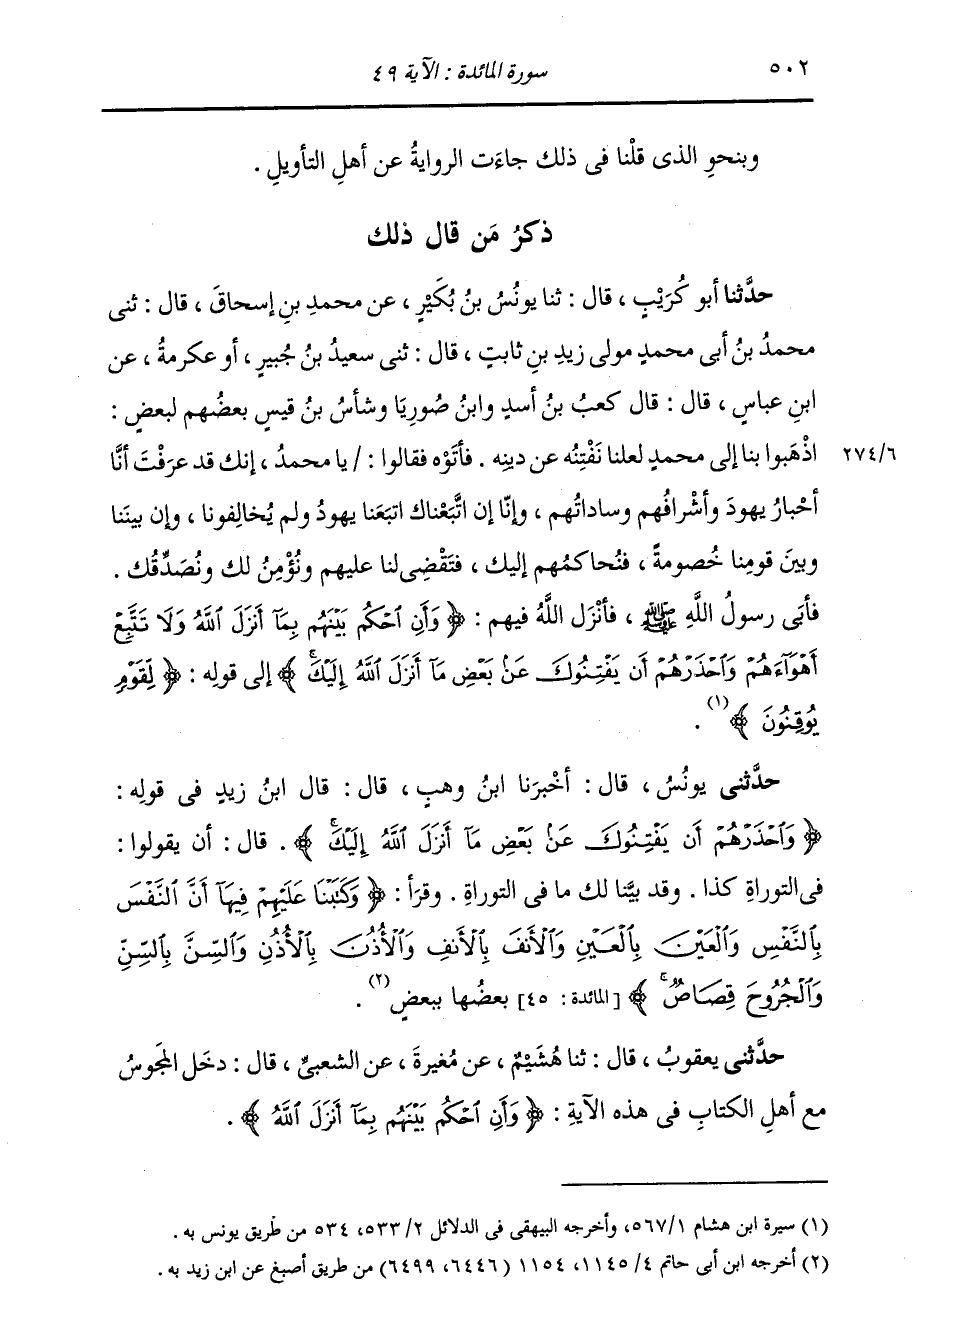 ٥٠٢ سورة المائدة : الآية ٤٩
وبنحوِ الذى قلْنا فى ذلك جاءَت الروايةُ عن أهلِ التأويلِ .
ذكرُ مَن قال ذلك
حدَّثنا أبو كُرَيْبٍ ، قال : ثنا يونُسُ بنُ بُكَيْرٍ ، عن محمدِ بنِ إسحاقَ ، قال : ثنى
محمدُ بنُ أبى محمدٍ مولى زيدِ بنِ ثابتٍ ، قال : ثنى سعيدُ بنُ جُبيرٍ ، أو عكرمةُ ، عن
ابنِ عباسٍ ، قال : قال كعبُ بنُ أسدٍ وابنُ صُورِيَا وشأسُ بنُ قيسٍ بعضُهم لبعضٍ :
اذْهَبوا بنا إلى محمدٍ لعلنا نَفْتِنُه عن دينِه . فأتَوْه فقالوا : / يا محمدُ ، إنك قد عرَفْتَ أنَّا ٢٧٤/٦
أحْبارُ يهودَ وأشْرافُهم وساداتُهم ، وإنَّا إن اتَّبَعْناك اتبَعَنا يهودُ ولم يُخالِفونا ، وإن بينَنا
وبينَ قومِنا خُصومةً ، فنُحاكمُهم إليك ، فتَقْضِى لنا عليهم ونُؤْمِنُ لك ونُصَدِّقُك .
فأبَى رسولُ اللَّهِ ﷺ ، فأنْزَل اللَّهُ فيهم : ﴿ وَأَنِ ٱحْكُم بَيْنَهُم بِمَآ أَنزَلَ ٱللَّهُ وَلَا تَتَّبِعْ
أَهْوَآءَهُمْ وَٱحْذَرْهُمْ أَن يَفْتِنُوكَ عَنۢ بَعْضِ مَآ أَنزَلَ ٱللَّهُ إِلَيْكَۖ ﴾ إلى قولِه : ﴿ لِّقَوْمٍ
يُوقِنُونَ ﴾(١) .
حدَّثنى يونُسُ ، قال : أخْبرَنا ابنُ وهبٍ ، قال : قال ابنُ زيدٍ فى قولِه :
﴿ وَٱحْذَرْهُمْ أَن يَفْتِنُوكَ عَنۢ بَعْضِ مَآ أَنزَلَ ٱللَّهُ إِلَيْكَۖ ﴾ . قال : أن يقولوا :
فى التوراةِ كذا . وقد بيَّنا لك ما فى التوراةِ . وقرَأ : ﴿ وَكَتَبْنَا عَلَيْهِمْ فِيهَآ أَنَّ ٱلنَّفْسَ
بِٱلنَّفْسِ وَٱلْعَيْنَ بِٱلْعَيْنِ وَٱلْأَنفَ بِٱلْأَنفِ وَٱلْأُذُنَ بِٱلْأُذُنِ وَٱلسِّنَّ بِٱلسِّنِّ
وَٱلْجُرُوحَ قِصَاصٌۚ ﴾ [المائدة : ٤٥] بعضُها ببعضٍ(٢) .
حدَّثنى يعقوبُ ، قال : ثنا هُشَيْمٌ ، عن مُغيرةَ ، عن الشعبىِّ ، قال : دخَل المجَوسُ
مع أهلِ الكتابِ فى هذه الآيةِ : ﴿ وَأَنِ ٱحْكُم بَيْنَهُم بِمَآ أَنزَلَ ٱللَّهُ ﴾ .
(١) سيرة ابن هشام ٥٦٧/١، وأخرجه البيهقى فى الدلائل ٥٣٣/٢، ٥٣٤ من طريق يونس به .
(٢) أخرجه ابن أبى حاتم ١١٤٥/٤، ١١٥٤ (٦٤٤٦، ٦٤٩٩) من طريق أصبغ عن ابن زيد به .